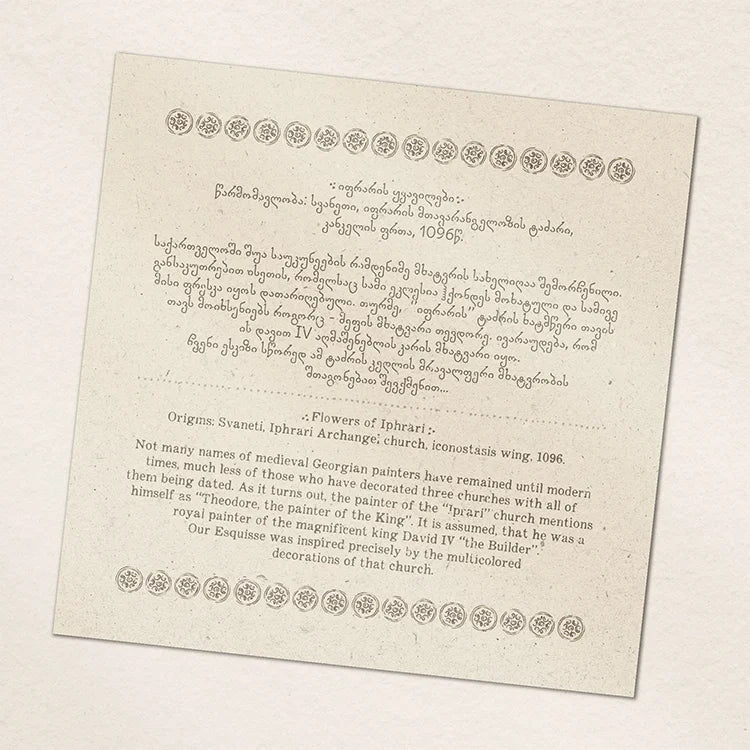 იფრარის ყვავილები
წარმომავლობა: სვანეთი, იფრარის მთავარანგელოზის ტაძარი,
კანკელის ფრთა, 1096წ.
საქართველოში შუა საუკუნეების რამდენიმე მხატვრის სახელიღაა შემორჩენილი.
განსაკუთრებით ისეთის, რომელსაც სამი ეკლესია ჰქონდეს მოხატული და სამივე
მისი ფრესკა იყოს დათარიღებული. თურმე, "იფრარის" ტაძრის ხატმწერი თავის
თავს მოიხსენიებს როგორც - მეფის მხატვარი თევდორე. ივარაუდება, რომ
ის დავით IV აღმაშენებლის კარის მხატვარი იყო.
ჩვენი ესკიზი სწორედ ამ ტაძრის კედლის მრავალფერი მხატვრობის
შთაგონებით შევქმენით...
Flowers of Iphrari
Origins: Svaneti, Iphrari Archangel church, iconostasis wing, 1096.
Not many names of medieval Georgian painters have remained until modern
times, much less of those who have decorated three churches with all of
them being dated. As it turns out, the painter of the "Iprari" church mentions
himself as "Theodore, the painter of the King". It is assumed, that he was a
royal painter of the magnificent king David IV "the Builder".
Our Esquisse was inspired precisely by the multicolored
decorations of that church.